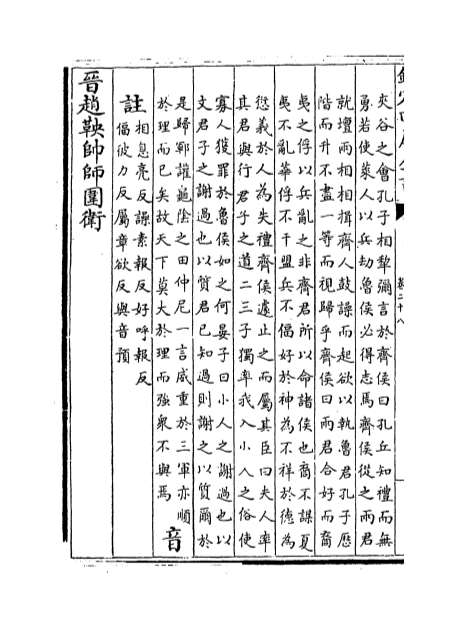 卷二十八
夾谷之會孔子相犂彌言於齊侯曰孔丘知禮而無
勇若使萊人以兵劫魯侯必得志焉齊侯從之兩君
就壇兩相相揖齊人鼓譟而起欲以執魯君孔子歷
階而升不盡一等而視歸乎齊侯曰兩君合好而裔
夷之俘以兵亂之非齊君所以命諸侯也裔不謀夏
夷不亂華俘不干盟兵不偪好於神為不祥於德為
愆義於人為失禮齊侯遽止之而屬其臣曰夫人率
其君與行君子之道二三子獨率我入小人之俗使
寡人獲罪於魯侯如之何晏子曰小人之謝過也以
文君子之謝過也以質君已知過則謝之以質爾於
是歸鄆讙龜陰之田仲尼一言威重於三軍亦順
於理而已矣故天下莫大於理而強衆不與焉 音
註 相息亮反譟素報反好呼報反
偪彼力反屬章欲反與音預
晉趙鞅帥師圍衛